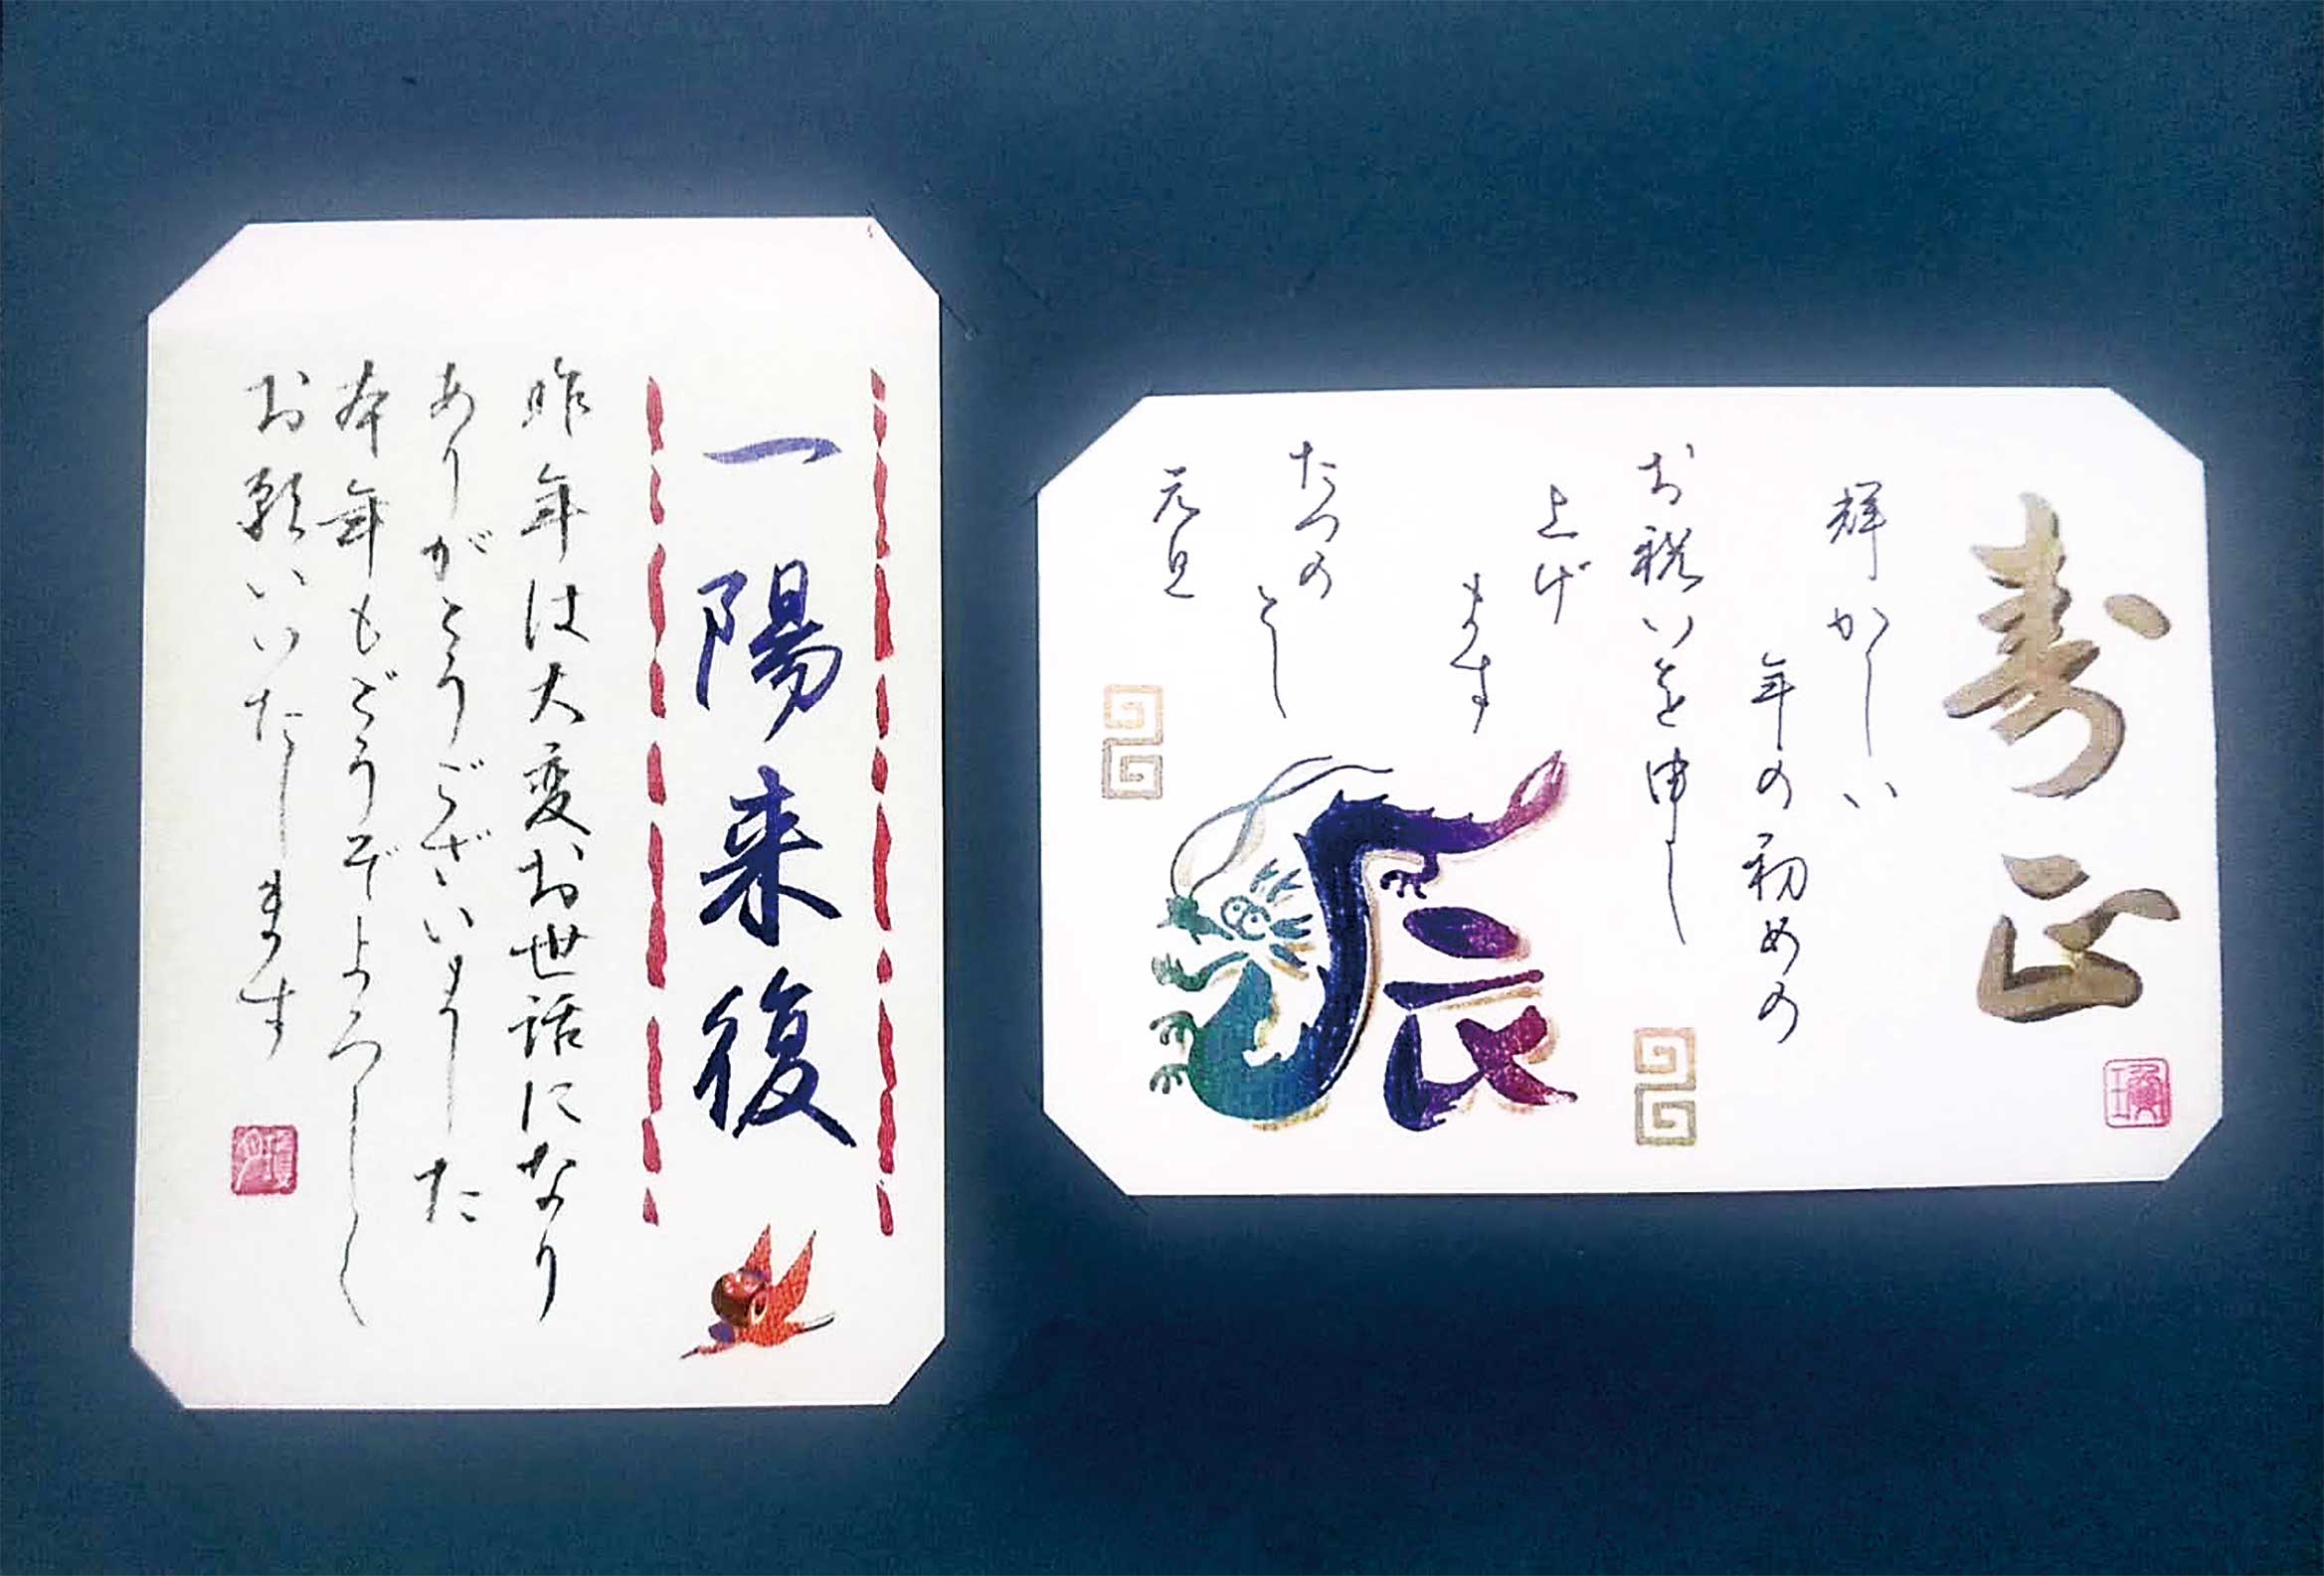 寿正
輝かしい
年の初めの
お祝いを申し
上げ
ます
たつの
とし
元旦
辰
一陽来復
昨年は大変お世話になり
ありがとうございました
本年もどうぞよろしく
お願いいたします